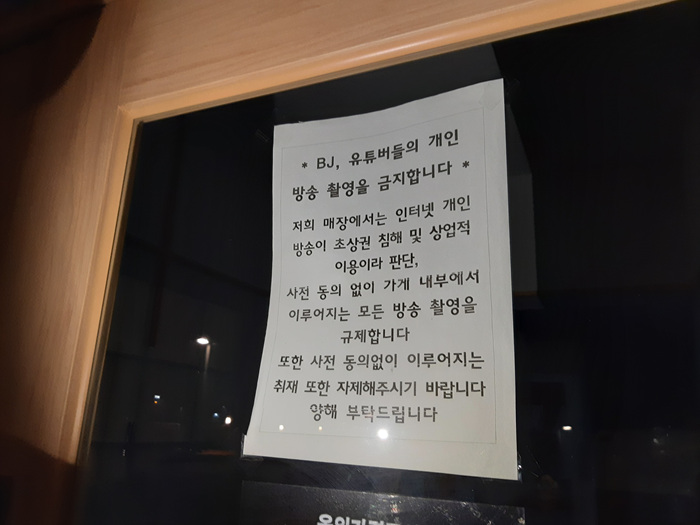 * BJ, 유튜버들의 개인
방송 촬영을 금지합니다 *
저희 매장에서는 인터넷 개인
방송이 초상권 침해 및 상업적
이용이라 판단,
사전 동의 없이 가게 내부에서
이루어지는 모든 방송 촬영을
규제합니다
또한 사전 동의없이 이루어지는
취재 또한 자제해주시기 바랍니다
양해 부탁드립니다